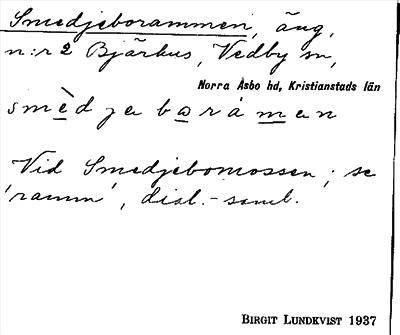 Smedjeborammen, äng,
n:r 2 Bjärhus, Vedby sn,
Norra Åsbo hd, Kristianstads län
smèdjebaråmen
Vid Smedjebomossen; se
'ramm', dial.-saml.
BIRGIT LUNDKVIST 1937